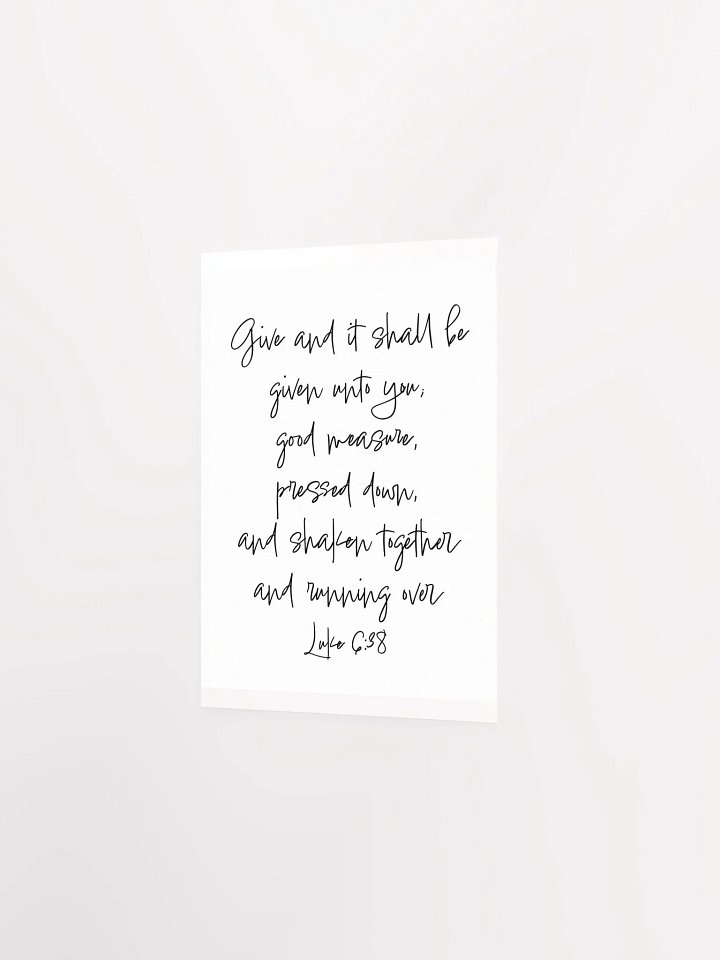 Give and it shall be
given unto you;
good measure,
pressed down,
and shaken together
and running over
Luke 6:38